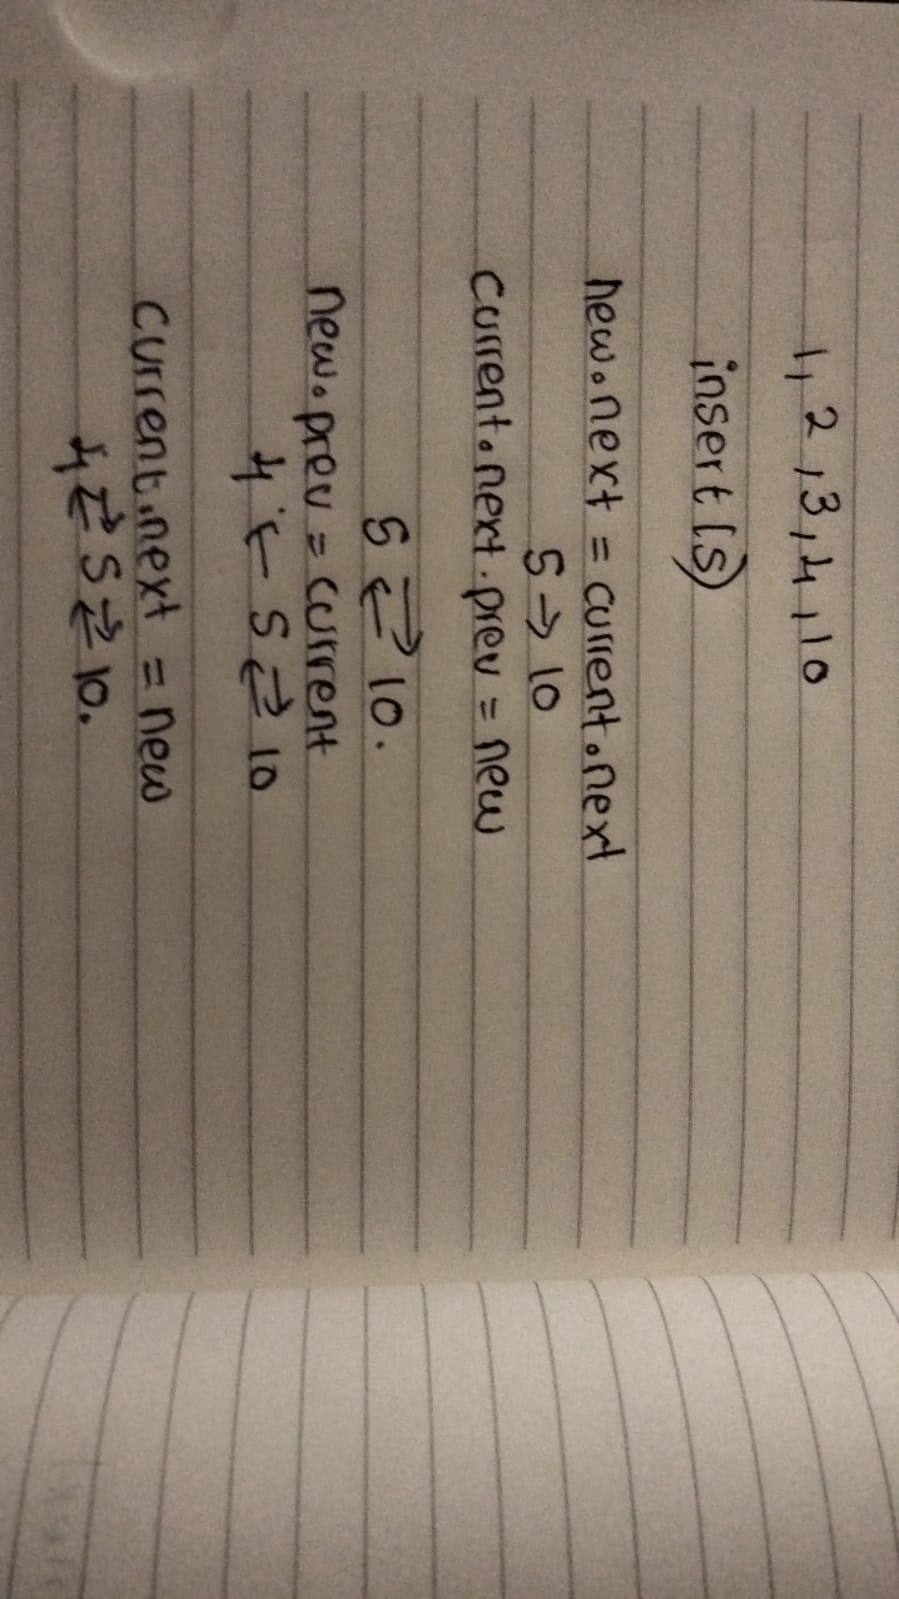 1, 2, 3, 4, 10
insert(5)
new.next = current.next
5 → 10
current.next.prev = new
5 ⇄ 10.
new.prev = current
4 ← 5 ⇄ 10
current.next = new
4 ⇄ 5 ⇄ 10.